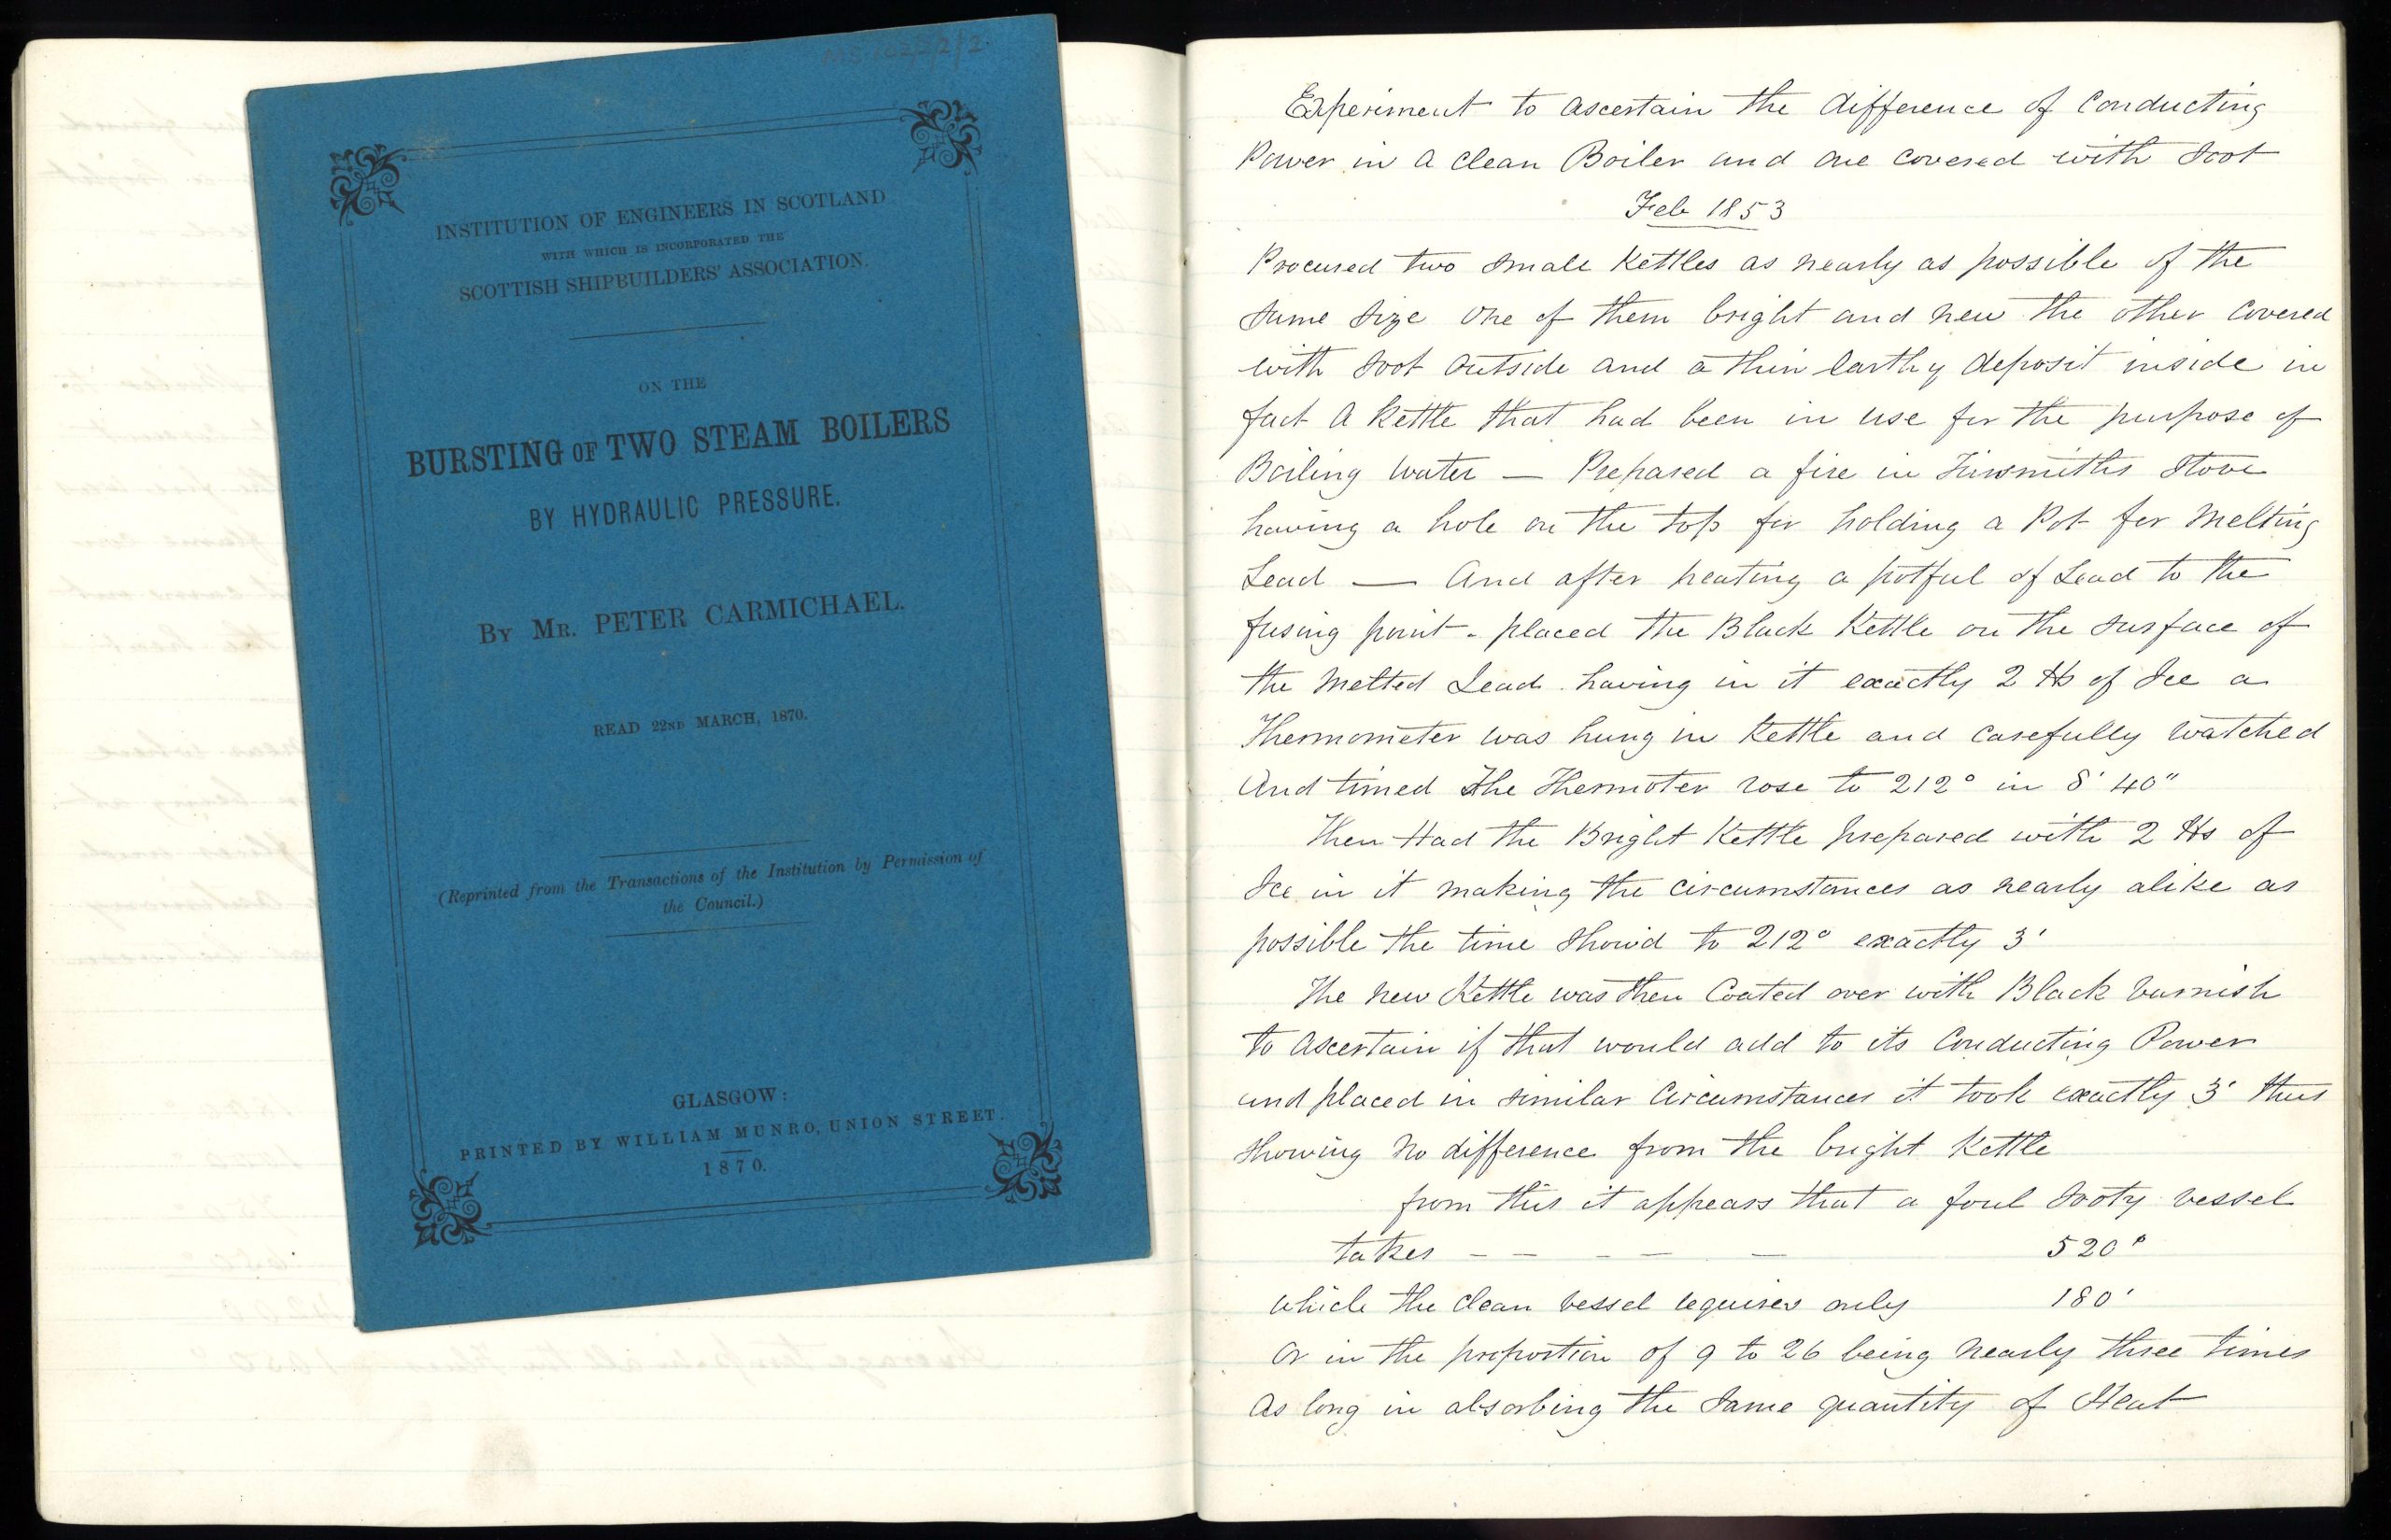 INSTITUTION OF ENGINEERS IN SCOTLAND
WITH WHICH IS INCORPORATED THE
SCOTTISH SHIPBUILDERS' ASSOCIATION.
ON THE
BURSTING OF TWO STEAM BOILERS
BY HYDRAULIC PRESSURE.
BY MR. PETER CARMICHAEL.
READ 22ND MARCH, 1870.
(Reprinted from the Transactions of the Institution by Permission of
the Council.)
GLASGOW:
PRINTED BY WILLIAM MUNRO, UNION STREET.
1870.
Experiment to ascertain the difference of Conducting
Power in a clean Boiler and one covered with Soot
Feb 1853
Procured two small Kettles as nearly as possible of the
same size one of them bright and new the other covered
with soot outside and a thin earthy deposit inside in
fact a kettle that had been in use for the purpose of
Boiling water — Prepared a fire in Tinsmiths Stove
having a hole on the top for holding a Pot for melting
Lead — And after heating a potful of Lead to the
fusing point - placed the Black Kettle on the surface of
the melted Lead having in it exactly 2 lbs of Ice a
Thermometer was hung in Kettle and carefully watched
And timed The Thermoter rose to 212° in 8' 40"
Then Had the Bright Kettle prepared with 2 lbs of
Ice in it making the circumstances as nearly alike as
possible the time Show'd to 212° exactly 3'
The new Kettle was then Coated over with Black varnish
to ascertain if that would add to its Conducting Power
and placed in similar Circumstances it took exactly 3' thus
showing no difference from the bright Kettle
from this it appears that a foul sooty vessel
takes - - - - - 520"
which the clean vessel requires only 180'
or in the proportion of 9 to 26 being nearly three times
as long in absorbing the same quantity of Heat